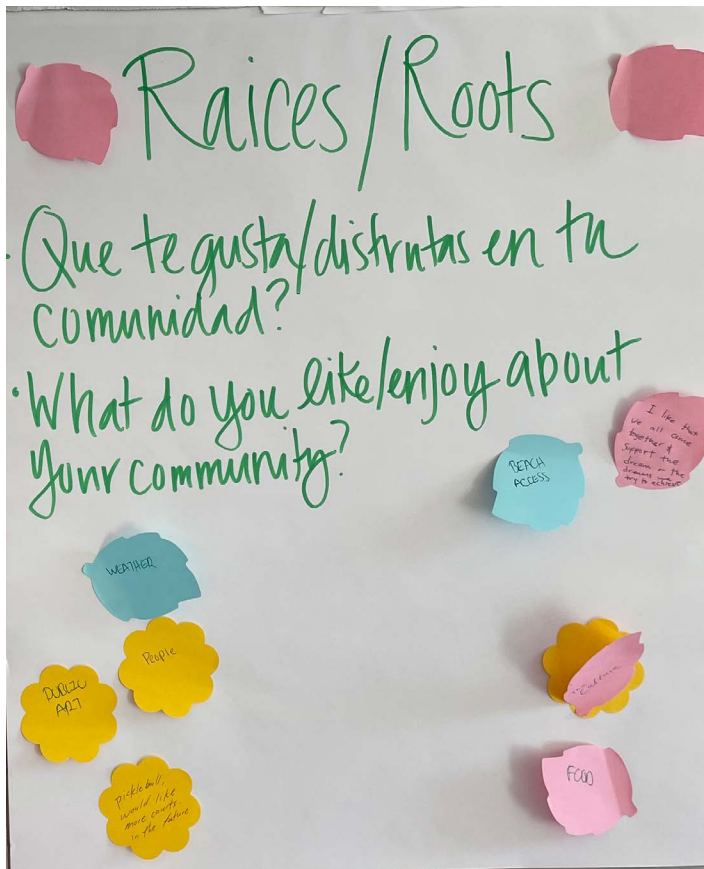 Raices/Roots
· Que te gusta/disfrutas en tu
comunidad?
· What do you like/enjoy about
your community?
I like that
we all come
together &
support the
dream or the
dreams we
try to achieve
BEACH
ACCESS
WEATHER
People
PUBLIC
ART
Culture
FOOD
pickleball,
would like
more courts
in the future